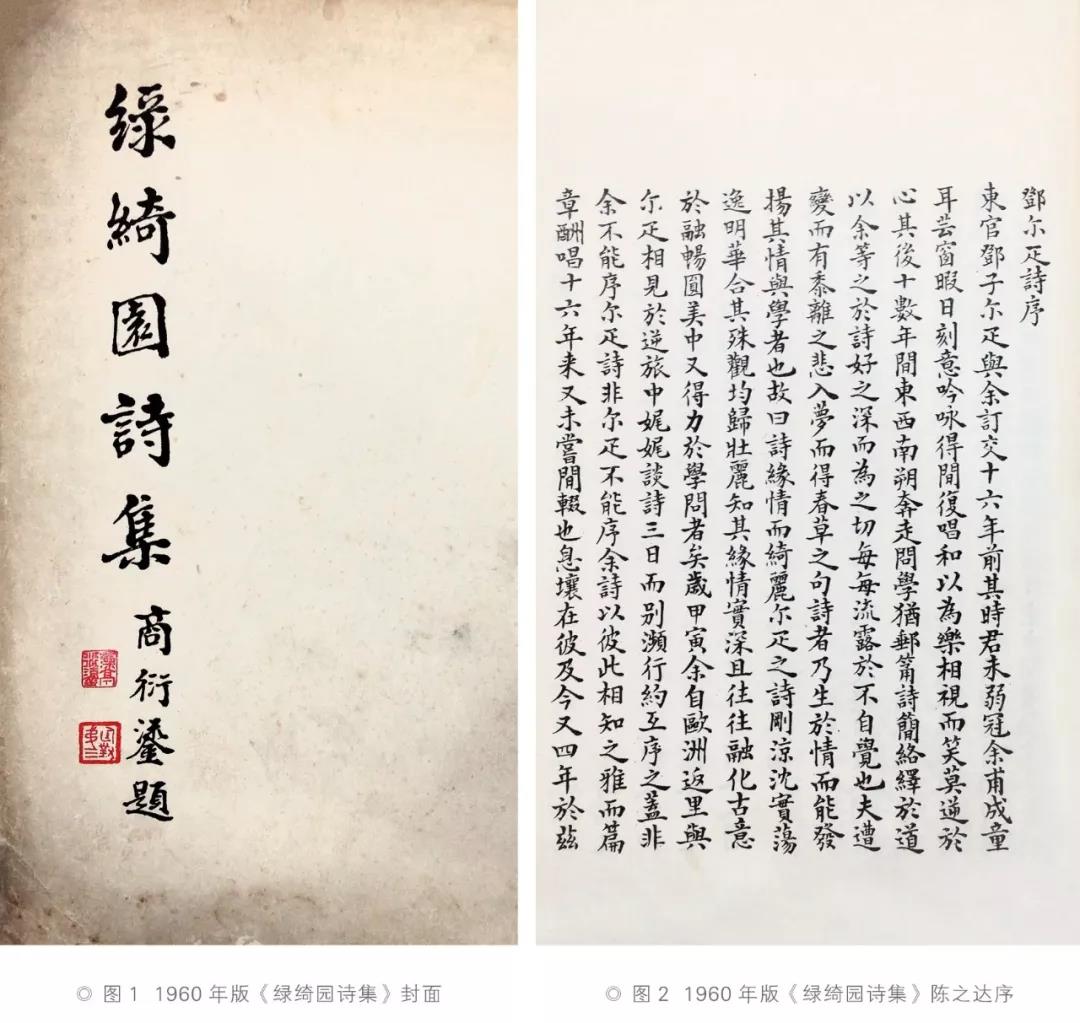 綠綺園詩集
商衍鎏題
鄧尔疋詩序
東官鄧子尔疋與余訂交十六年前其時君未弱冠余甫成童
耳芸窗暇日刻意吟咏得閒復唱和以為樂相視而笑莫逆於
心其後十數年間東西南朔奔走問學猶郵筩詩簡絡繹於道
以余等之於詩好之深而為之切每每流露於不自覺也夫遭
變而有黍離之悲入夢而得春草之句詩者乃生於情而能發
揚其情與學者也故曰詩緣情而綺麗尔疋之詩剛涼沈實蕩
逸明華合其殊觀均歸壯麗知其緣情實深且往往融化古意
於融暢圓美中又得力於學問者矣歲甲寅余自歐洲返里與
尔疋相見於逆旅中娓娓談詩三日而別瀕行約互序之蓋非
余不能序尔疋詩非尔疋不能序余詩以彼此相知之雅而篇
章酬唱十六年来又未嘗閒輟也息壤在彼及今又四年於茲
◎ 图 1 1960 年版《绿绮园诗集》封面
◎ 图 2 1960 年版《绿绮园诗集》陈之达序